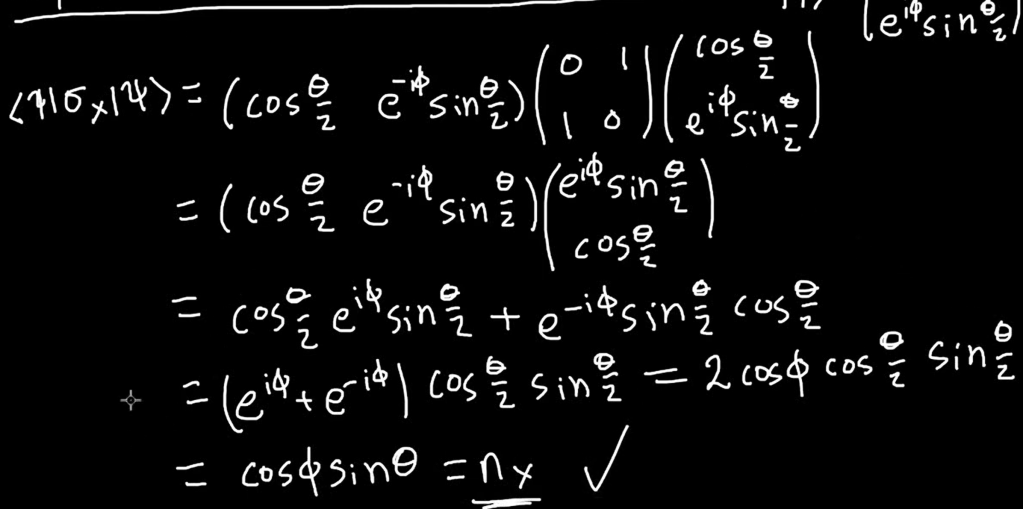 (e^{iϕ} sin θ/2)
⟨ψ|σ_x|ψ⟩ = (cos θ/2 e^{-iϕ} sin θ/2) (0 1; 1 0) (cos θ/2; e^{iϕ} sin θ/2)
= (cos θ/2 e^{-iϕ} sin θ/2) (e^{iϕ} sin θ/2; cos θ/2)
= cos θ/2 e^{iϕ} sin θ/2 + e^{-iϕ} sin θ/2 cos θ/2
= (e^{iϕ} + e^{-iϕ}) cos θ/2 sin θ/2 = 2 cosϕ cos θ/2 sin θ/2
= cosϕ sinθ = n_x ✓